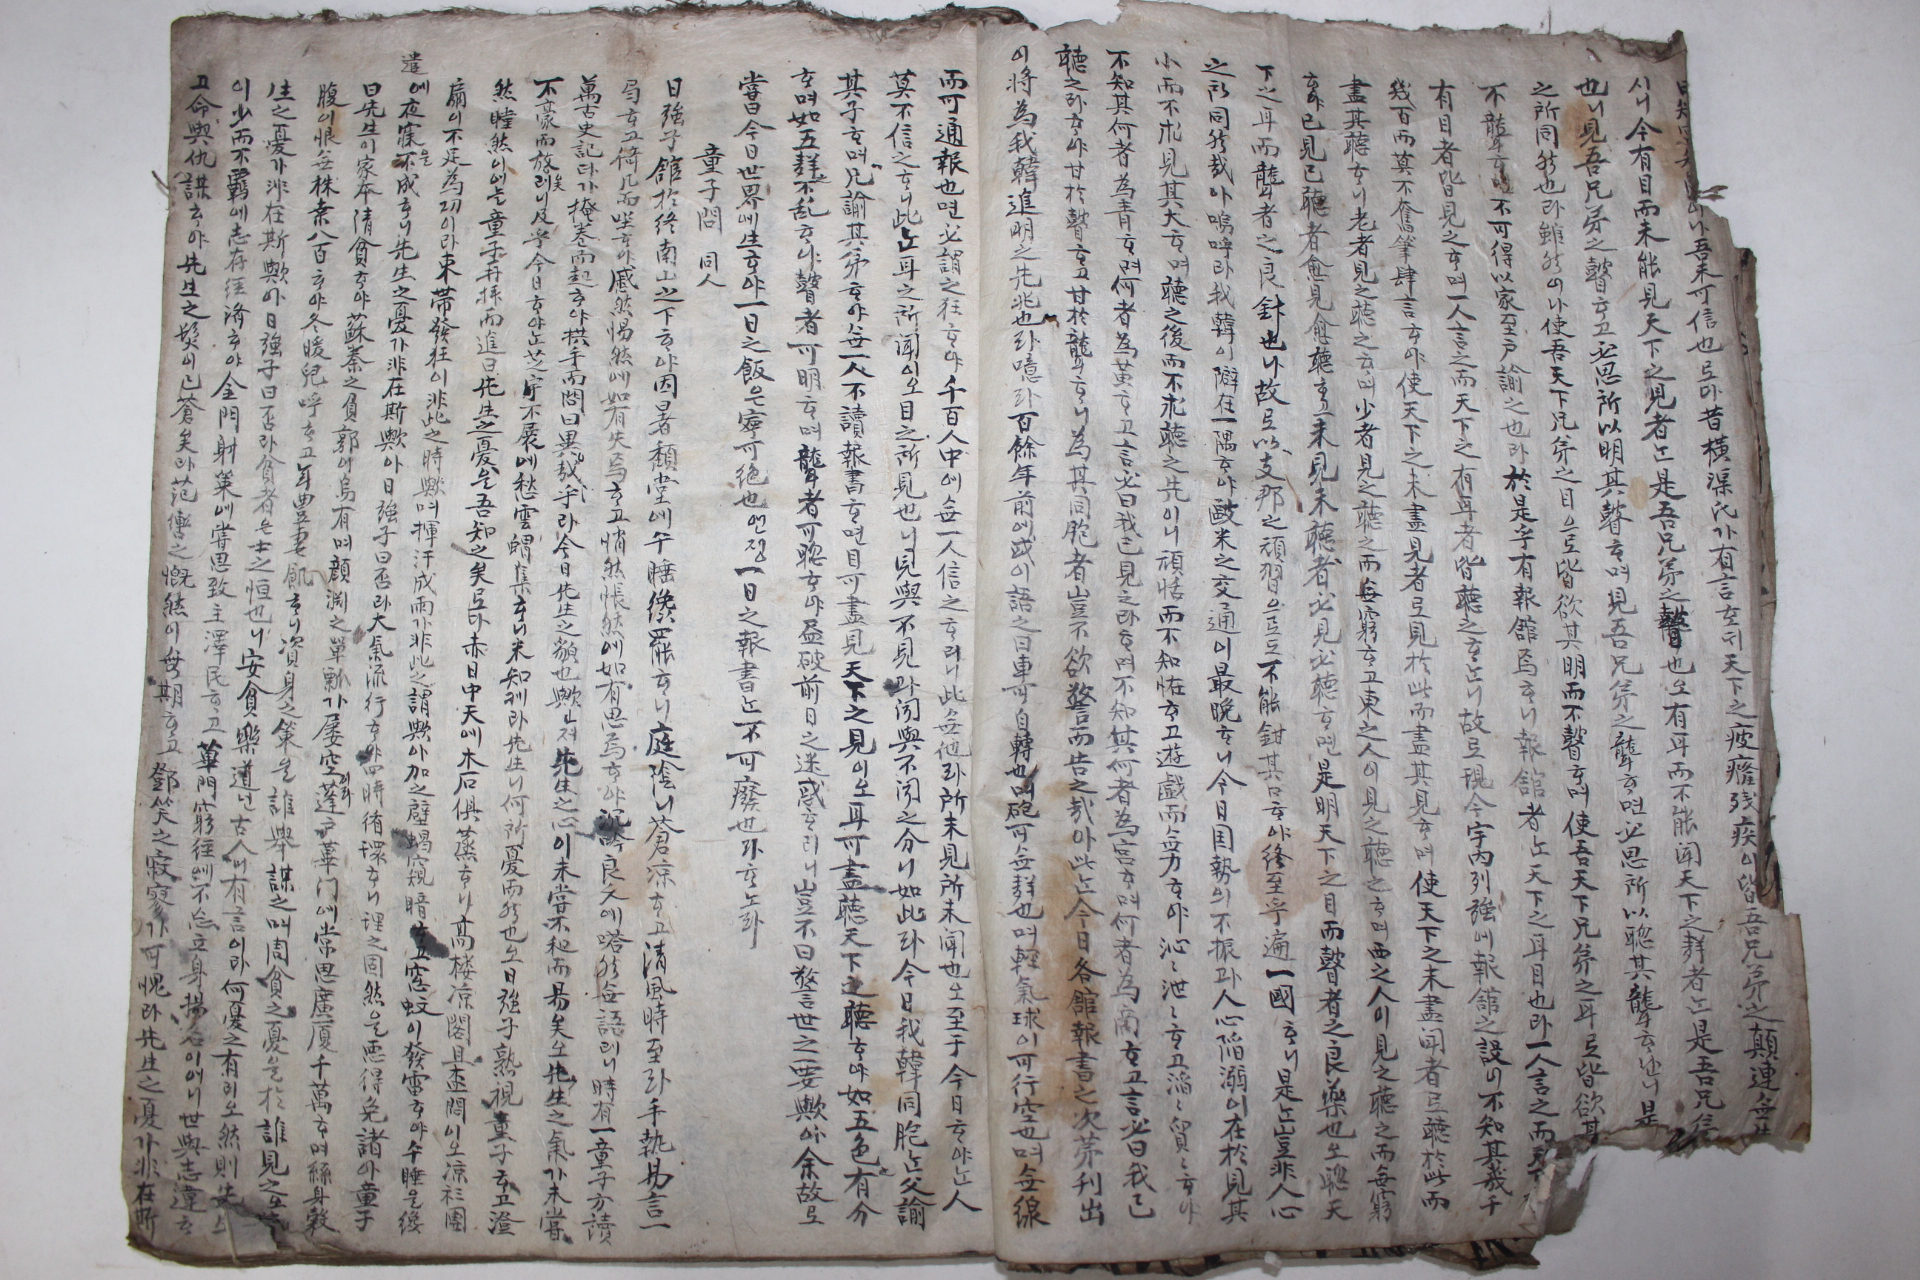 시니今有目而未能見天下之見者is是吾兄弟之瞽也오有耳而不能聞天下之聲者is是吾兄弟
也니見吾兄弟之瞽하고必思所以明其瞽하며見吾兄弟之聾하면必思所以聰其聾하나니是
之所同然也라雖然이나使吾天下兄弟之目으로皆欲其明而不瞽하며使吾天下兄弟之耳로皆欲其
不聾하 不可得以家至戶諭之也라於是乎有報舘焉하니報舘者는天下之耳目也라一人言之而天下
有目者皆見之하며一人言之而天下之有耳者皆聽之하느니故로現今宇內列強에報舘之設이不知其幾千
幾百而莫不奮筆肆言하야使天下之未盡見者로見於此而盡其見하며使天下之未盡聞者로聽於此而
盡其聽하니老者見之聽之하며少者見之聽之而無窮하고東之人이見之聽之하며西之人이見之聽之而無窮
하야已見已聽者愈見愈聽하고未見未聽者必見必聽하면是明天下之目而瞽者之良藥也오聰天
下之耳而聾者之良針也니故로以支那之頑習으로도不能鉗其口하야終至乎遍一國하니是는豈非人心
之所同然哉아嗚呼라我韓이僻在一隅하야歐米之交通이最晩하니今日国勢의不振과人心陷溺이在於見其
小而不求見其大하며聽之後而不求聽之先이니頑恬而不知怪하고遊戱而無力하야沁沁泄泄하고滔滔貿貿하야
不知其何者為青하며何者為黃하고言必曰我已見之라하며不知其何者為宮하며何者為商하고言必曰我已
聽之라하야甘於瞽하고甘於聾하니為其同胞者豈不欲警而告之哉아此는今日各舘報書之次第刊出
이將為我韓進明之先兆也라噫라百餘年前에或이語之曰車可自轉也며砲可無聲也며輕氣球이可行空也며無線
而可通報也면必謂之狂하야千百人中에無一人信之하리니此無他라所未見所未聞也오至于今日하야는人
莫不信之하니此는耳之所聞이오目之所見也니見與不見과聞與不聞之分니如此라今日我韓同胞는父諭
其子하며兄諭其弟하야無一人不讀報書하면目可盡見天下之見이오耳可盡聽天下之聽하야如五色有分
하며如五聲不乱하야瞽者可明하며聾者可聰하야盡破前日之迷惑하리니豈不曰警世之要歟아余故로
嘗曰今日世界에生하야一日之飯은寧可絶也언졍一日之報書는不可廢也라하노라
童子問 同人
日強子舘於終南山之下하야因暑頹堂에午睡纔罷하니庭陰니蒼凉하고清風時至라手執易言一
局하고倚几而坐하야感然惕然에如有失焉하고悄然悵然에如有思焉하야沉吟良久에嗒然無語러니時有一童子方讀
萬古史記라가掩卷而起하야拱手而問曰異哉乎라今日先生之顔也歟며先生之心이未嘗不和而易矣오先生之氣가未嘗
不豪而放矣러니及乎今日하야는芝宇不展에愁雲蝟集하니未知케라先生니何所憂而然也오日強子熟視童子하고澄
然瞠然이어늘童子再拜而進曰先生之憂를吾知之矣로라赤日中天에木石俱蒸하니高楼凉閣且盃問이오凉衫團
扇이不足為功이라束帶發狂이非此之時歟며揮汗成雨가非此之謂歟아加之壁蝎窺暗하고窓蚊이發雷하야午睡를纔
遣에夜寐을不成하니先生之憂가非在斯歟아日強子曰否라大氣流行하야四時循環하니理之固然을惡得免諸아童子
曰先生이家本清貧하야蘇秦之負郭이烏有며顔淵之單瓢가屡空이라蓬戶蓽門에常思廣厦千萬하며絲身穀
腹이恨無株桑八百하야冬暖兒呼하고年豊妻飢하니資身之策을誰與謀之며周貧之憂을於誰見之오先
生之憂가非在斯歟아日強子曰否라貧者는士之恒也니安貧樂道난古人에有言이라何憂之有리오然則先生
이少而不羈에志存經濟하야金門射策에嘗思致主澤民하고蓽門窮經에不忘立身揚名이에니世與志違하
고命與仇謀하야先生之鬓이已蒼矣라范  之慨然이毋期하고鄧笑之寂寥가可愧라先生之憂가非在斯